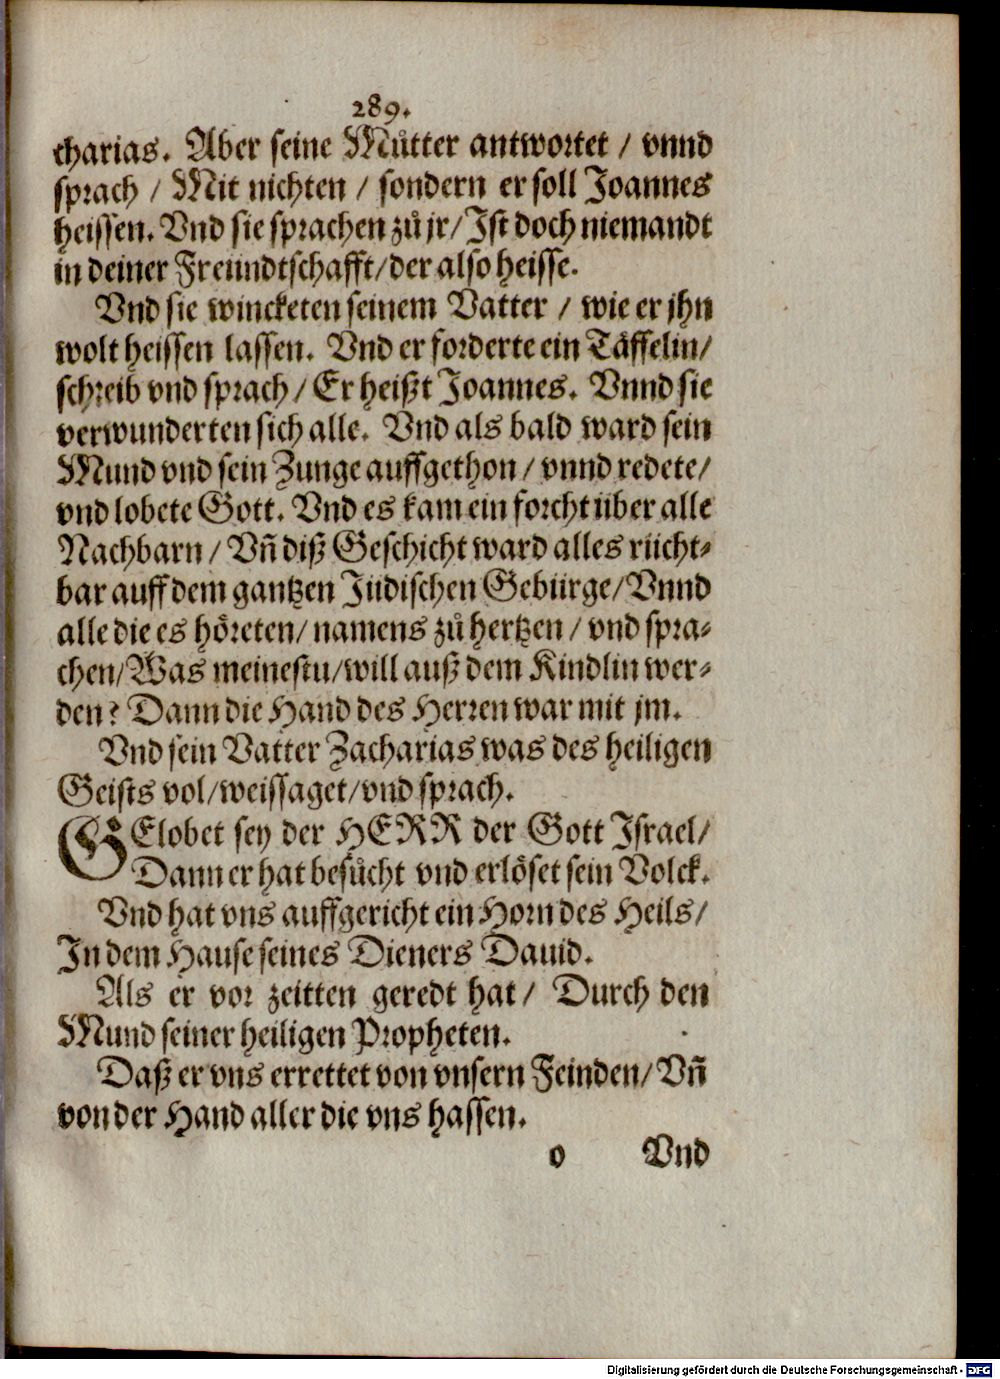 289.
charias. Aber seine Můtter antwortet / vnnd
sprach / Mit nichten / sondern er soll Joannes
heissen. Vnd sie sprachen zů jr / Ist doch niemandt
in deiner Freundtschafft / der also heisse.
Vnd sie wincketen seinem Vatter / wie er jhn
wolt heissen lassen. Vnd er forderte ein Täffelin /
schreib vnd sprach / Er heißt Joannes. Vnnd sie
verwunderten sich alle. Vnd als bald ward sein
Mund vnd sein Zunge auffgethon / vnnd redete /
vnd lobete Gott. Vnd es kam ein forcht über alle
Nachbarn / Vn̄ diß Geschicht ward alles rücht-
bar auff dem gantzen Jüdischen Gebürge / Vnnd
alle die es höreten / namens zů hertzen / vnd spra-
chen / Was meinestu / will auß dem Kindlin wer-
den? Dann die Hand des Herren war mit jm.
Vnd sein Vatter Zacharias was des heiligen
Geists vol / weissaget / vnd sprach.
GElobet sey der HERR der Gott Israel /
Dann er hat besůcht vnd erlöset sein Volck.
Vnd hat vns auffgericht ein Horn des Heils /
In dem Hause seines Dieners Dauid.
Als er vor zeitten geredt hat / Durch den
Mund seiner heiligen Propheten.
Daß er vns errettet von vnsern Feinden / Vn̄
von der Hand aller die vns hassen.
o Vnd
Digitalisierung gefördert durch die Deutsche Forschungsgemeinschaft - DFG